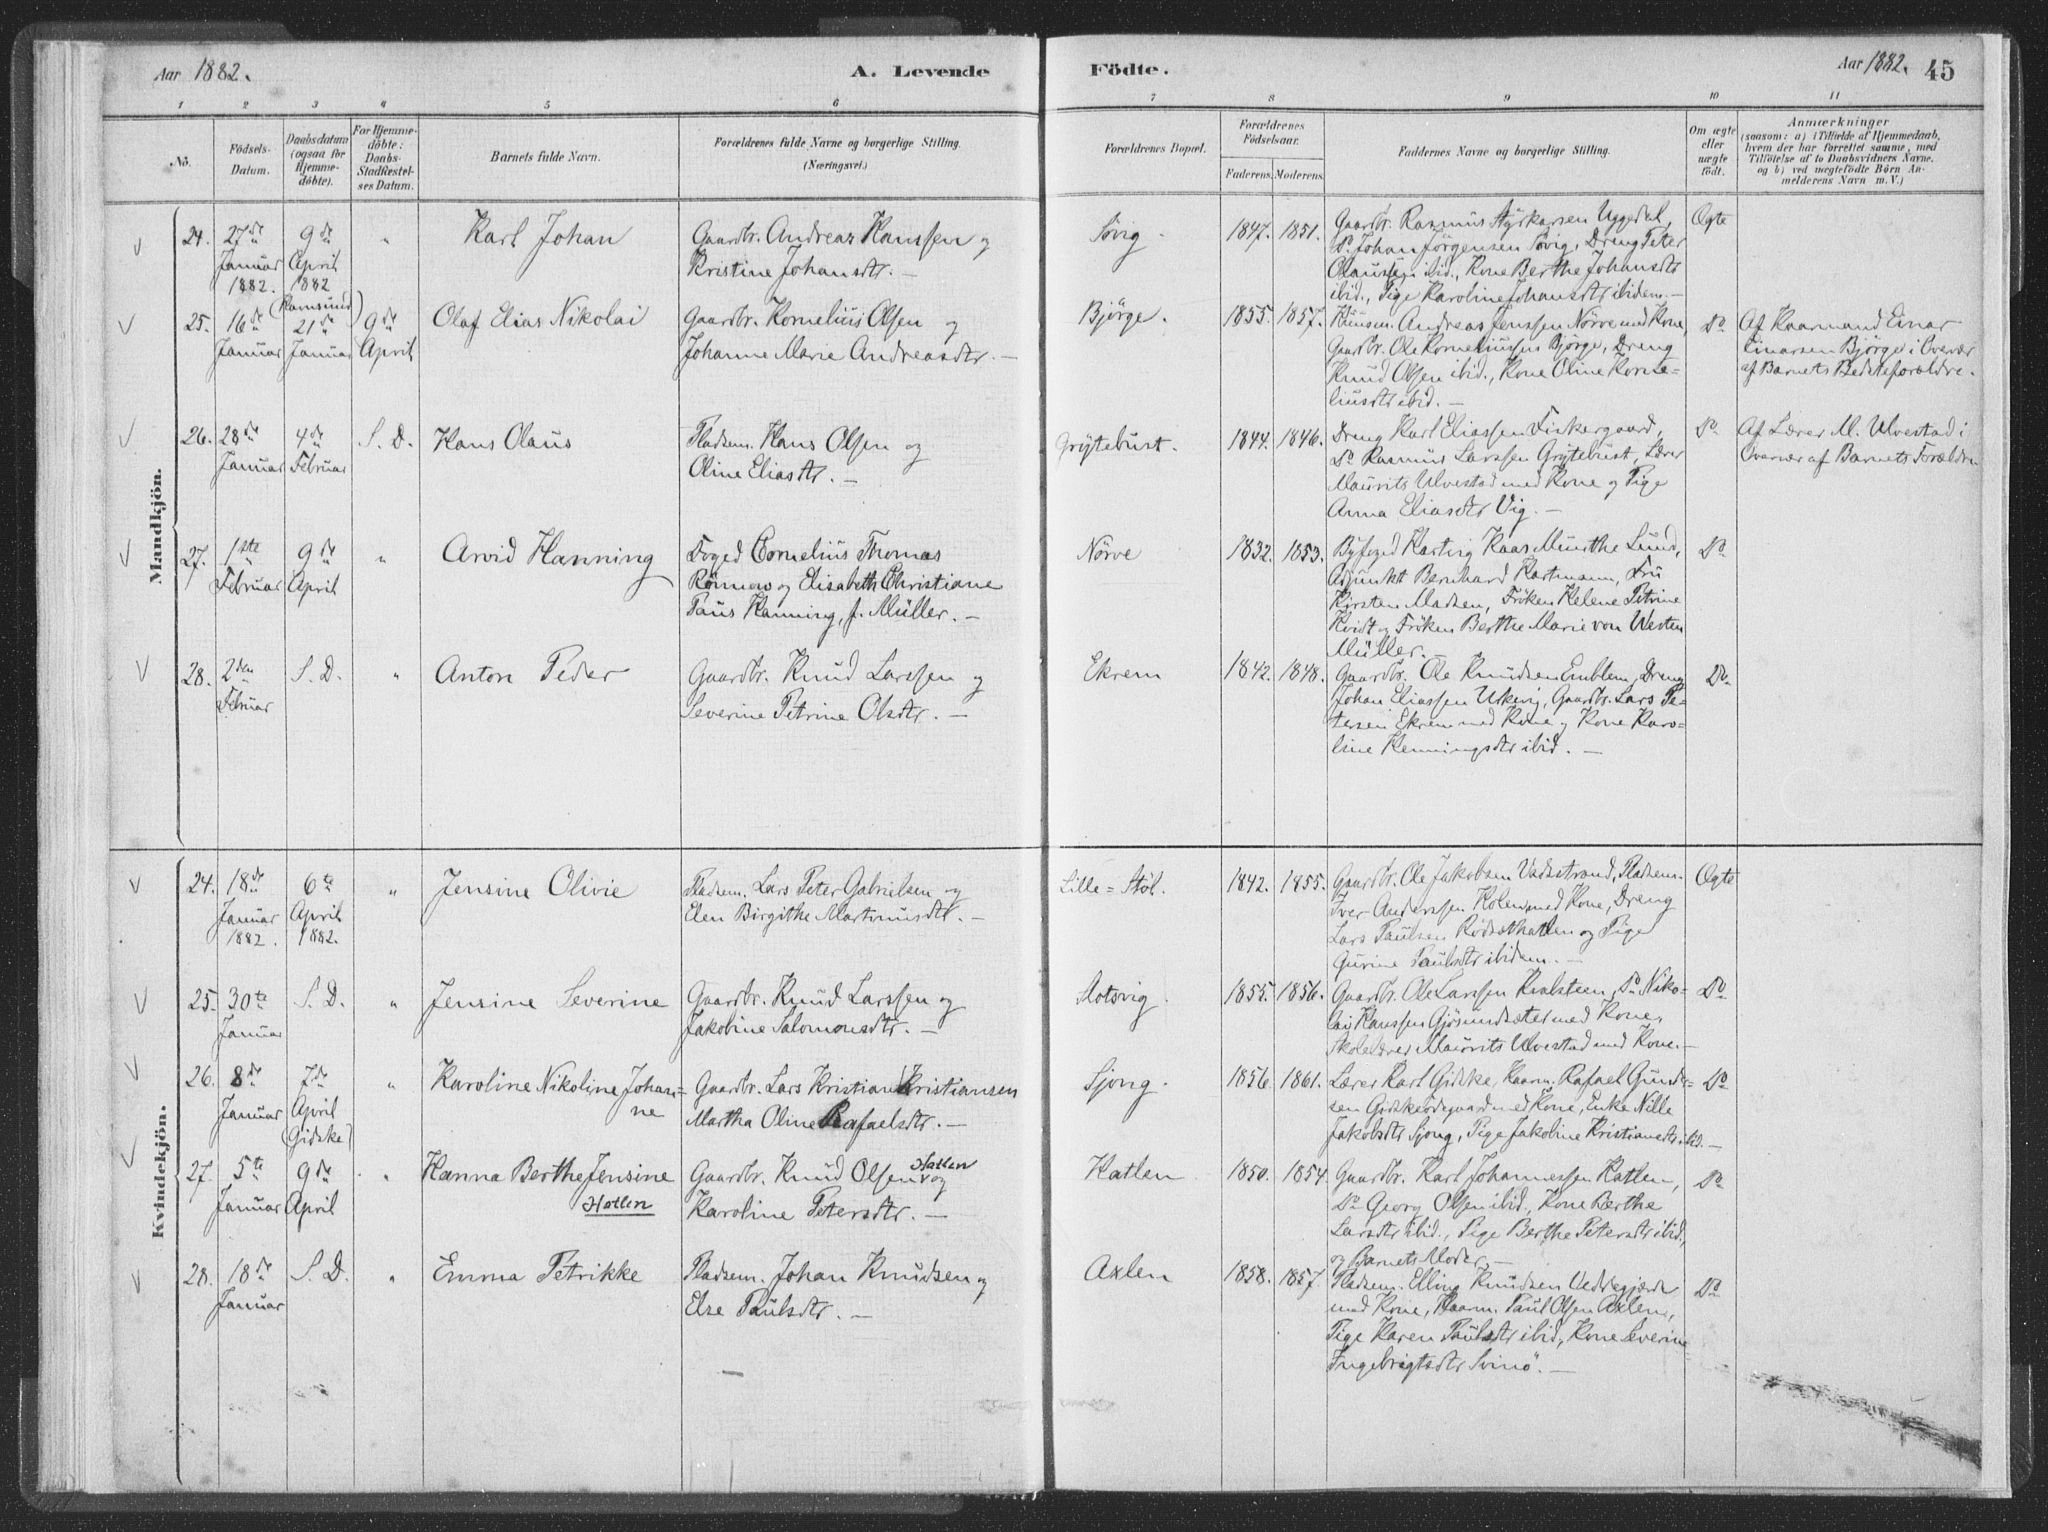 Aar 1882.
A. Levende
Födte.
Aar 1882.
45
1 2 3 4 5 6 7 8 9 10 11
No.
Födsels-
Datum.
Daabsdatum
(ogsaa for
Hjemme-
döbte).
For Hjemme-
döbte:
Daabs-
Stadfæstel-
ses Datum.
Barnets fulde Navn.
Forældrenes fulde Navne og borgerlige Stilling.
(Næringsvei.)
Forældrenes Bopæl.
Forældrenes
Födselsaar.
Faderens. Moderens.
Faddernes Navne og borgerlige Stilling.
Om ægte
eller
uægte
födt.
Anmærkninger
(saasom: a) i Tilfælde af Hjemmedaab,
hvem der har forrettet samme, med
Tilföielse af to Daabsvidners Navne,
og b) ved uægtefödte Börn An-
melderens Navn m. V.)
Mandkjön.
24. 27de Januar 1882. 9de April 1882 "
Karl Johan
Gaardbr. Andreas Hanssen og
Kristine Johansdtr. —
Søvig.
1847. 1851.
Gaardbr. Rasmus Styrkarsen Uggedal,
Do Johan Jörgensen Søvig, Dreng Peter
Olaussen ibid., Kone Berthe Johansdtr
ibid., Pige Karoline Johansdtr ibidem. —
Ægte
25. 16de Januar (Ramsund) 21de Januar 9de April
Olaf Elias Nikolai
Gaardbr. Kornelius Olsen og
Johanne Marie Andreasdtr. —
Bjørge.
1855. 1857.
Huusm. Andreas Jenssen Nörve med Kone,
Gaardbr. Ole Korneliussen Bjørge, Dreng
Knud Olsen ibid., Kone Oline Korne-
liusdtr ibid. —
Do
Af Kaarmand Einar
Einarsen Bjørge i Overvær
af Barnets Bedsteforældre.
26. 28de Januar 4de Februar S. D.
Hans Olaus
Pladsm. Hans Olsen og
Oline Eliasdtr. —
Grytebust.
1844. 1846.
Dreng Karl Eliassen Fiskergaard,
Do Rasmus Larssen Grytebust, Lærer
Maurits Ulvestad med Kone og Pige
Anna Eliasdtr Vig. —
Do
Af Lærer M. Ulvestad i
Overvær af Barnets Forældre.
27. 1ste Februar 9de April "
Arvid Hanning
Foged Cornelius Thomas
Rönnow og Elisabeth Christiane
Paus Hanning, f. Müller. —
Nörve
1832. 1853.
Byfoged Hartvig Kaas Munthe Lund,
Adjunkt Bernhard Hartmann, Fru
Kirsten Madsen, Fröken Helene Petrine
Kvidt og Fröken Berthe Marie von Westen
Müller. —
Do
28. 2den Februar S. D. "
Anton Peder
Gaardbr. Knud Larssen og
Severine Petrine Olsdtr. —
Ekrem
1842. 1848.
Gaardbr. Ole Knudsen Emblem, Dreng
Johan Eliassen Urkevig, Gaardbr. Lars Pe-
tersen Ekrem med Kone og Kone Karo-
line Henningsdtr ibid. —
Do
Kvindekjön.
24. 18de Januar 1882. 6te April 1882. "
Jensine Olivie
Pladsm. Lars Peter Gabrielsen og
Elen Birgithe Martinusdtr. —
Lille-Stöl.
1842. 1855.
Gaardbr. Ole Jakobsen Vadsstrand, Pladsm.
Iver Anderssen Holen med Kone, Dreng
Lars Paulsen Rødsæthatlen og Pige
Gurine Paulsdtr ibidem. —
Ægte
25. 30te Januar S. D. "
Jensine Severine
Gaardbr. Knud Larssen og
Jakobine Salomonsdtr. —
Flotsvig.
1855. 1856.
Gaardbr. Ole Larssen Kvalsteen, Do Niko-
lai Hanssen Gjøsundsæter med Kone,
Skolelærer Maurits Ulvestad med Kone. —
Do
26. 8de Januar 7de April (Gidske) "
Karoline Nikoline Johan-
ne
Gaardbr. Lars Kristian Kristiansen
Martha Oline Rafaelsdtr. —
Sjong.
1856. 1861.
Lærer Karl Gidske, Kaarm. Rafael Gunder-
sen Gidskeødegaard med Kone, Enke Nille
Jakobsdtr Sjong, Pige Jakobine Kristiansdtr ibid. —
Do
27. 5te Januar 9de April "
Hanna Berthe Jensine
Hatlen
Gaardbr. Knud Olsen Hatlen og
Karoline Petersdtr. —
Hatlen
1850. 1854.
Gaardbr. Karl Johannessen Hatlen,
Do Georg Olsen ibid., Kone Berthe
Larsdtr ibid., Pige Berthe Petersdtr ibid.,
og Barnets Moder. —
Do
28. 18de Januar S. D. "
Emma Petrikke
Pladsm. Johan Knudsen og
Else Paulsdtr. —
Axlen
1858. 1857.
Pladsm. Elling Knudsen Vedregjærde
med Kone, Kaarm. Paul Olsen Axlen,
Pige Karen Paulsdtr ibid., Kone Severine
Ingebrigtsdtr Svinö. —
Do